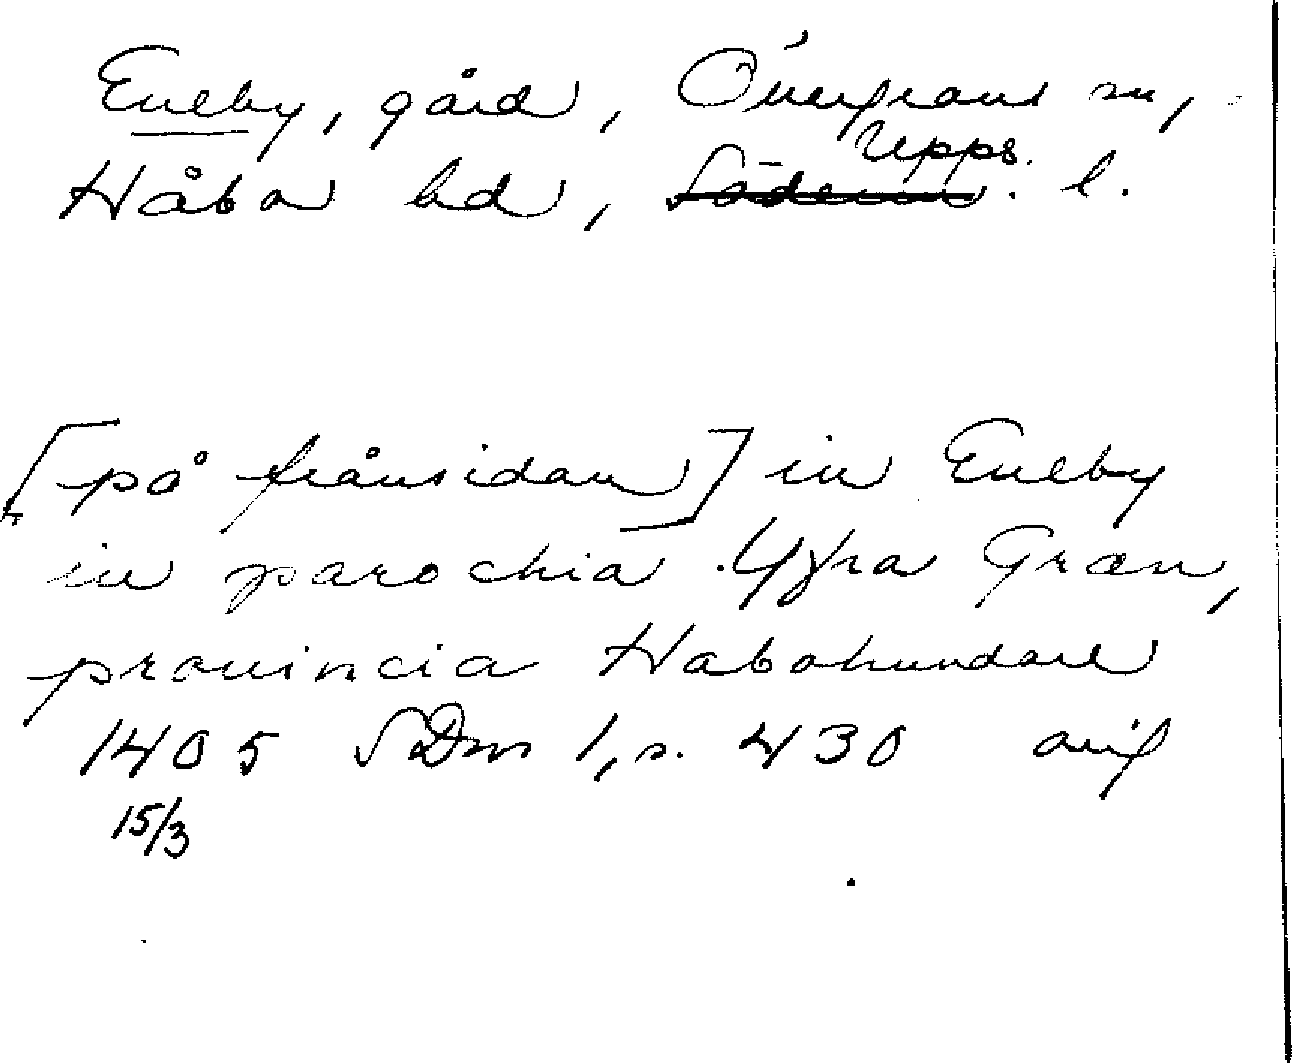 Eneby, gård, Övergrans sn,
Håbo hd, Söderm. Upps. l.
[på frånsidan] in Eneby
in parochia Yfra Gran,
prouincia Habohundare
1405 SDns 1, s. 430 avskr
15/3